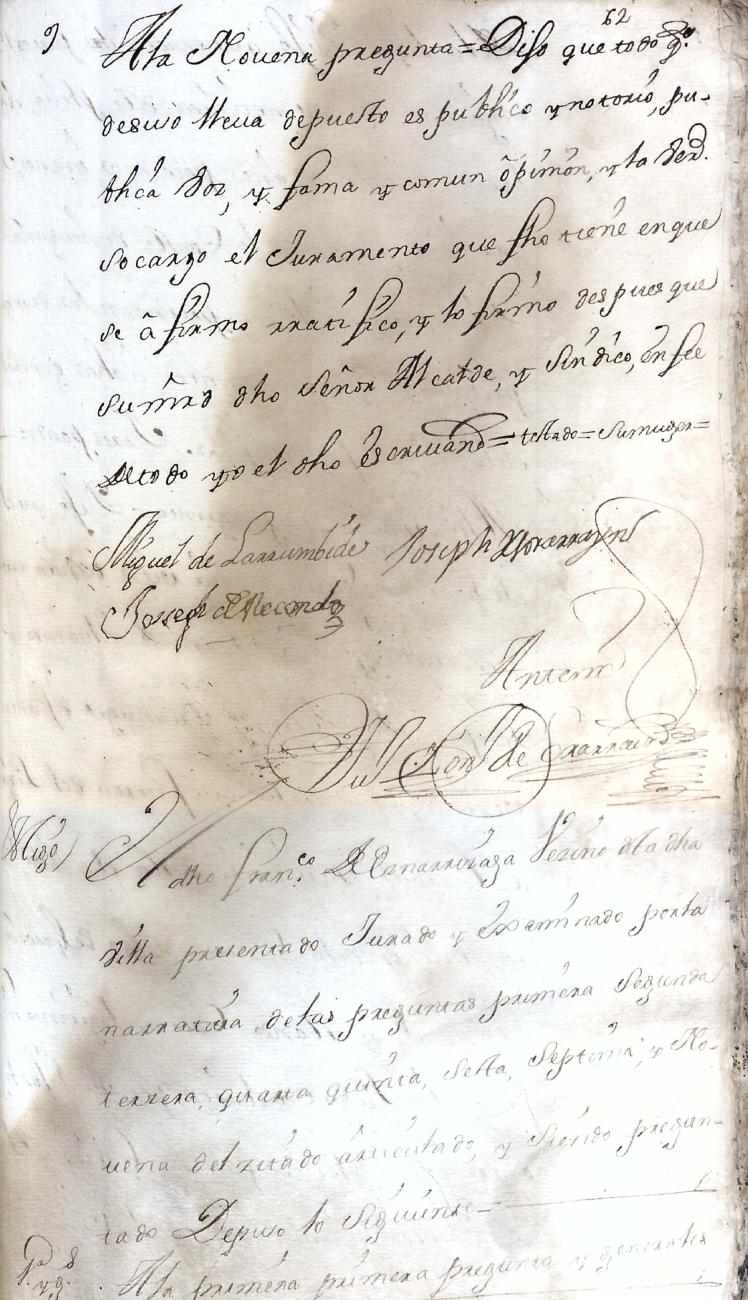 62
9 A la Novena pregunta = Dijo que todo q.e
desuso lleva depuesto es publico y notorio, pu-
blica voz, y fama y comun opinion, y la verd.
socargo el Juramento que fho tiene en que
se afirmo rratifico, y lo firmo despues que
su mrd dho señor Alcalde, y sindico, en fee
de todo yo el dho escrivano = testado = su muger =
Miguel de Larrumbide Joseph
Joseph de Recondo
Antemi
de
El dho Fran.co de Eznarrizaga Vezino de la dha
villa presentado Jurado y examinado por la
narrativa de las preguntas primera segunda
terzera, quarta quinta, sesta, septima, y No-
vena del zitado articulado, y siendo pregun-
tado Depuso lo siguiente
A la primera primera pregunta y generales